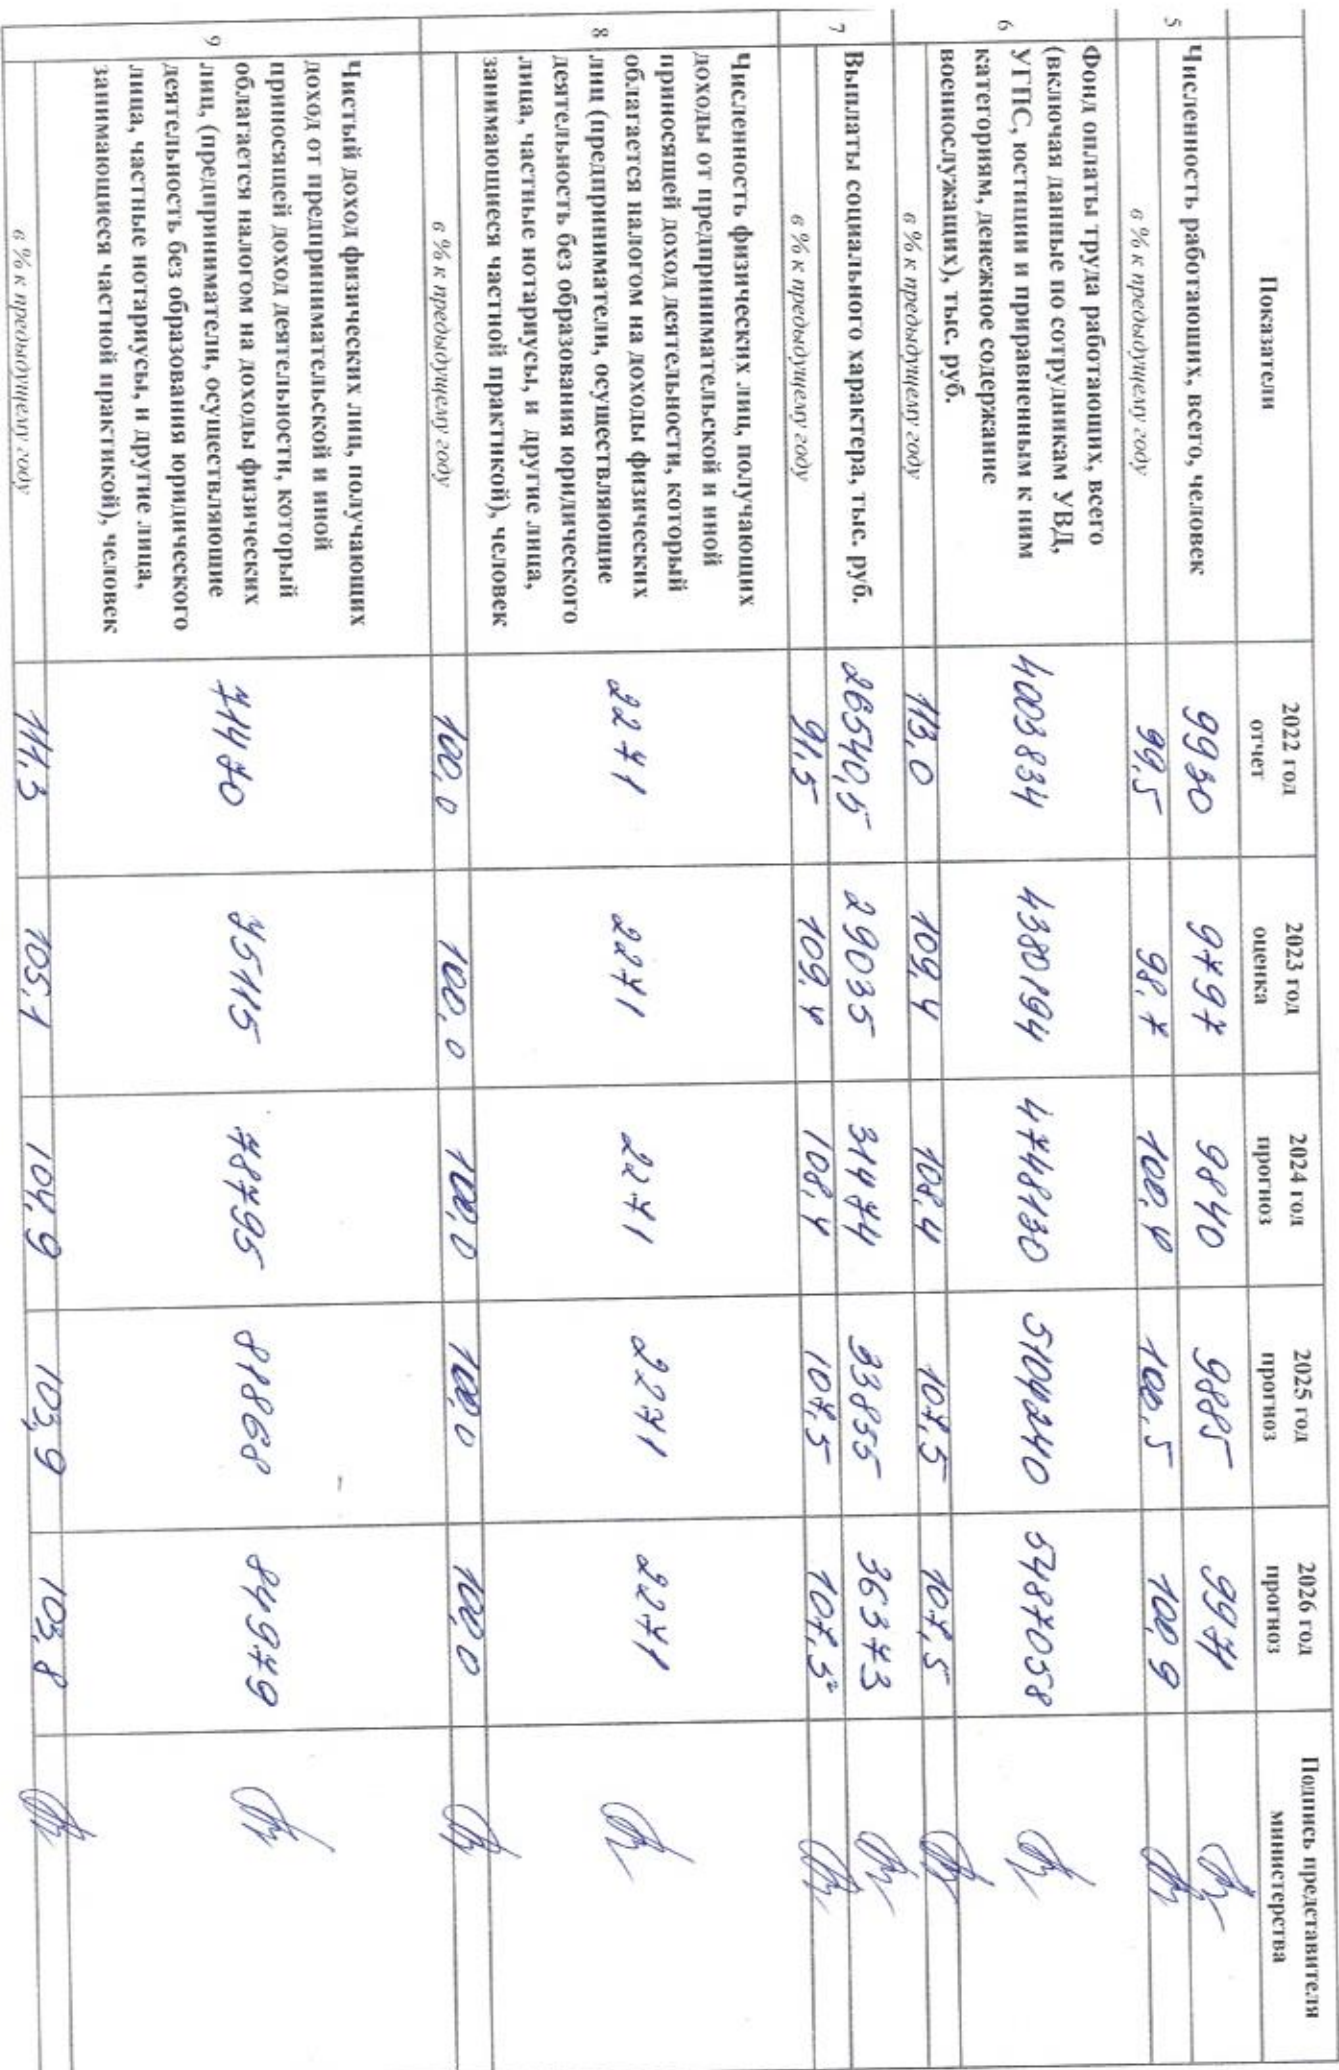 Показатели
2022 год
отчет
2023 год
оценка
2024 год
прогноз
2025 год
прогноз
2026 год
прогноз
Подпись представителя
министерства
5 Численность работающих, всего, человек 9930 9797 9840 9885 9971
в % к предыдущему году 99,5 98,7 100,4 100,5 100,9
6
Фонд оплаты труда работающих, всего
(включая данные по сотрудникам УВД,
УГПС, юстиции и приравненным к ним
категориям, денежное содержание
военнослужащих), тыс. руб.
4003834 4380194 4748130 5104240 5487058
в % к предыдущему году 113,0 109,4 108,4 107,5 107,5
7 Выплаты социального характера, тыс. руб. 26540,5 29035 31474 33835 36373
в % к предыдущему году 91,5 109,4 108,4 107,5 107,5
8
Численность физических лиц, получающих
доходы от предпринимательской и иной
приносящей доход деятельности, который
облагается налогом на доходы физических
лиц (предприниматели, осуществляющие
деятельность без образования юридического
лица, частные нотариусы, и другие лица,
занимающиеся частной практикой), человек
2271 2271 2271 2271 2271
в % к предыдущему году 100,0 100,0 100,0 100,0 100,0
9
Чистый доход физических лиц, получающих
доход от предпринимательской и иной
приносящей доход деятельности, который
облагается налогом на доходы физических
лиц, (предприниматели, осуществляющие
деятельность без образования юридического
лица, частные нотариусы, и другие лица,
занимающиеся частной практикой), человек
71470 75115 78795 81868 84979
в % к предыдущему году 111,3 105,1 104,9 103,9 103,8